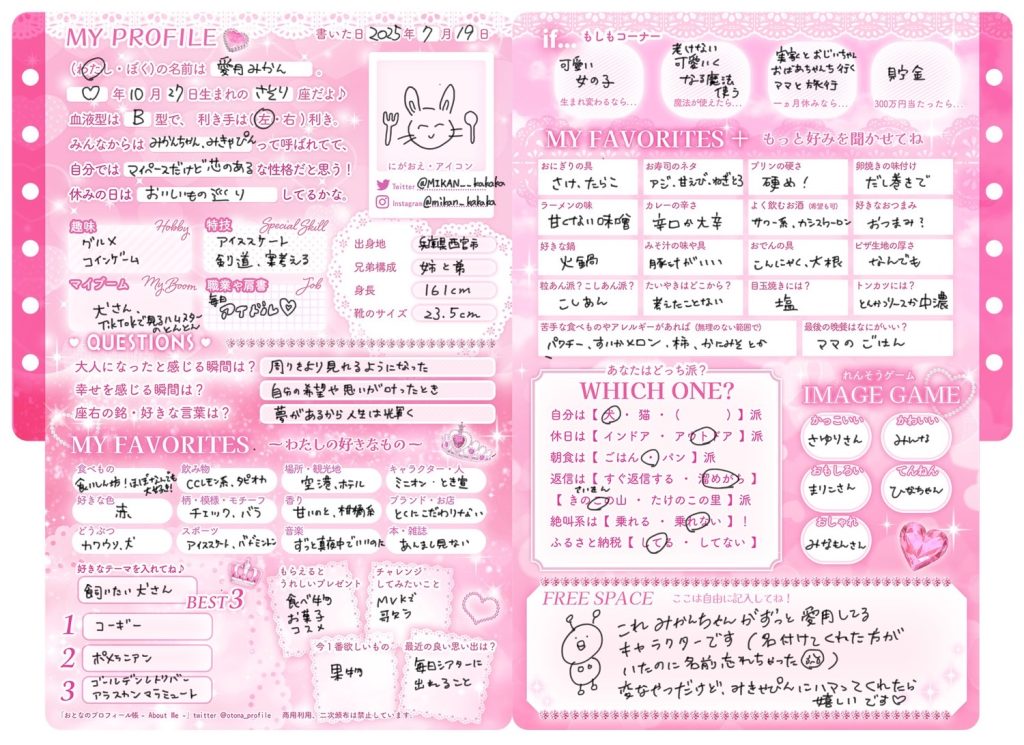 MY PROFILE
書いた日 2025年 7月 19日
(わたし・ぼく)の名前は 愛月みかん 。
♡年 10月 27日生まれの さそり 座だよ♪
血液型は B 型で、利き手は(左・右)利き。
みんなからは みかんちゃん、みきゃぴん って呼ばれてて、
自分では マイペースだけど芯のある な性格だと思う!
休みの日は おいしいもの巡り してるかな。
にがおえ・アイコン
Twitter @MIKAN__kakaka
Instagram @mikan__kakaka
趣味 Hobby
グルメ
コインゲーム
特技 Special Skill
アイススケート
剣道、案考える
マイブーム My Boom
犬さん、
TikTokで見るハムスター
のとんとん
職業や肩書 Job
毎日
アイドル♡
出身地 兵庫県西宮市
兄弟構成 姉と弟
身長 161cm
靴のサイズ 23.5cm
QUESTIONS
大人になったと感じる瞬間は? 周りをより見れるようになった
幸せを感じる瞬間は? 自分の希望や思いがけったとき
座右の銘・好きな言葉は? 夢があるから人生は輝く
MY FAVORITES. ~わたしの好きなもの~
食べもの
食いしん坊!ほぼなんでも
大好き!
飲み物
CCレモン系、タピオカ
場所・観光地
空港、ホテル
キャラクター・人
ミニオン・とき宣
好きな色
赤
柄・模様・モチーフ
チェック、バラ
香り
甘いのと、柑橘系
ブランド・お店
とくにこだわりない
どうぶつ
カワウソ、犬
スポーツ
アイススケート、バドミントン
音楽
ずっと真夜中でいいのに
本・雑誌
あんまし見ない
好きなテーマを入れてね♪
飼いたい犬さん
BEST3
1 コーギー
2 ポメラニアン
3 ゴールデンレトリバー
アラスカンマラミュート
もらえると
うれしいプレゼント
食べ物
お菓子
コスメ
チャレンジ
してみたいこと
MVKで
歌う
今1番欲しいもの
果物
最近の良い思い出は?
毎日シアターに
出れること
「おとなのプロフィール帳 - About Me -」twitter @otona_profile 商用利用、二次頒布は禁止しています。
if... もしもコーナー
可愛い
女の子
生まれ変わるなら...
老けない
可愛いく
なる魔法
使う
魔法が使えたら...
実家とおじいちゃん
おばあちゃんち行く
ママと旅行
一ヵ月休みなら...
貯金
300万円当たったら...
MY FAVORITES + もっと好みを聞かせてね
おにぎりの具
さけ、たらこ
お寿司のネタ
アジ、甘えび、ねぎとろ
プリンの硬さ
硬め!
卵焼きの味付け
だし巻きで
ラーメンの味
甘くない味噌
カレーの辛さ
辛口か大辛
よく飲むお酒 (希望も可)
サワー系、カシスウーロン
好きなおつまみ
おつまみ?
好きな鍋
火鍋
みそ汁の味や具
豚汁がいい
おでんの具
こんにゃく、大根
ピザ生地の厚さ
なんでも
粒あん派?こしあん派?
こしあん
たいやきはどこから?
考えたことない
目玉焼きには?
塩
トンカツには?
とんかつソースか中濃
苦手な食べものやアレルギーがあれば (無理のない範囲で)
パクチー、すいかメロン、柿、かにみそとか
最後の晩餐はなにがいい?
ママのごはん
あなたはどっち派?
WHICH ONE?
自分は【 犬・ 猫 ・( )】派
休日は【 インドア ・ アウトドア 】派
朝食は【 ごはん ・ パン 】派
返信は【 すぐ返信する ・ 溜めがち 】派
【 きのこの山 ・ たけのこの里 】派
絶叫系は【 乗れる ・ 乗れない 】!
ふるさと納税【 してる ・ してない 】
れんそうゲーム
IMAGE GAME
かっこいい
さゆりさん
かわいい
みんける
おもしろい
まりこさん
てんねん
ひなちゃん
おしゃれ
みなもんさん
FREE SPACE ここは自由に記入してね!
これ みかんちゃんがずっと愛用してる
キャラクターです(名付けてくれた方が
いたのに名前忘れちゃった
変なやつだけど、みきゃぴんにハマってくれたら
嬉しいです♡